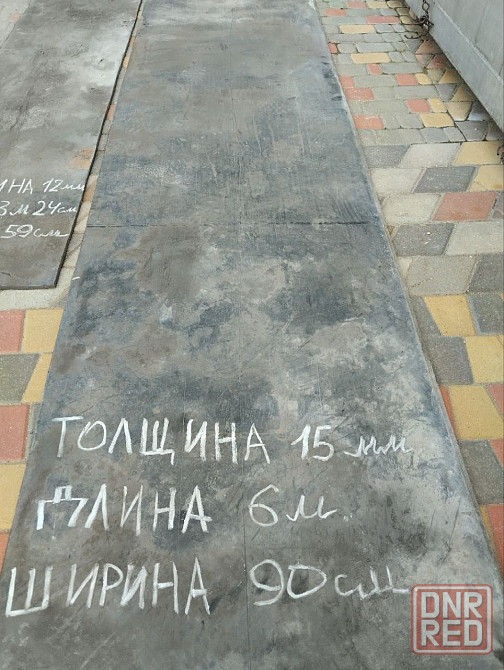 ИНА 12мм
3м 24см
59см
ТОЛЩИНА 15мм
ДЛИНА 6м.
ШИРИНА 90см
DNR
RED